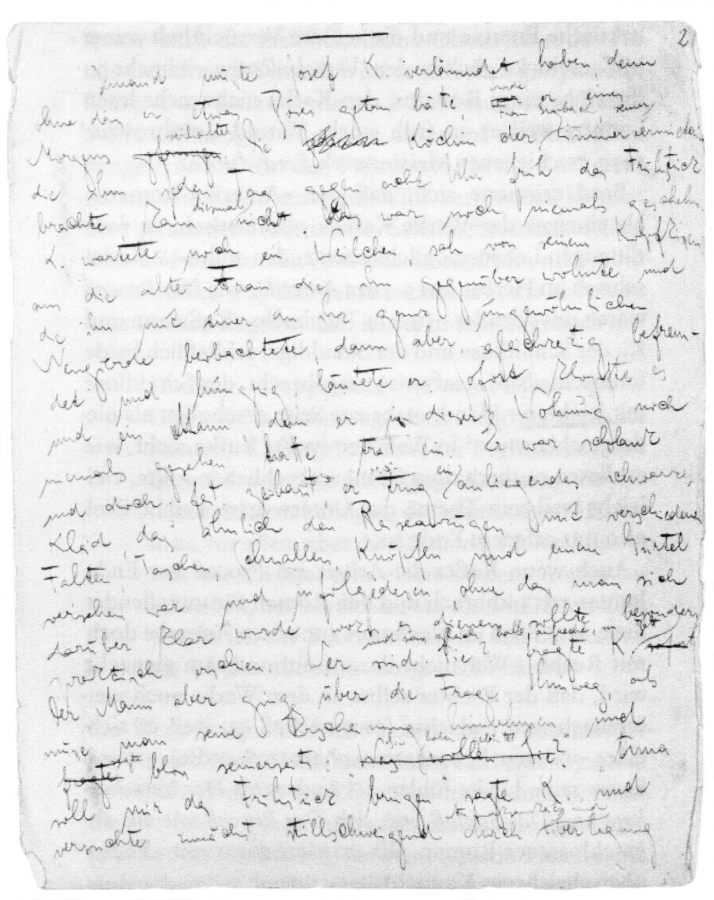 2
Jemand mußte Josef K. verläumdet haben, denn
ohne daß er etwas Böses getan hätte, wurde er eines
Morgens verhaftet. Die Köchin der Zimmervermieterin
die ihm jeden Tag gegen acht Uhr früh das Frühstück
brachte kam diesmal nicht. Das war noch niemals geschehn.
K. wartete noch ein Weilchen, sah von seinem Kopfkissen
aus die alte Frau die ihm gegenüber wohnte und
die ihn mit einer an ihr ganz ungewöhnlichen
Neugierde beobachtete, dann aber, gleichzeitig befrem-
det und hungrig, läutete er. Sofort klopfte es
und ein Mann, den er in dieser Wohnung noch
niemals gesehen hatte trat ein. Er war schlank
und doch fest gebaut, er trug ein anliegendes schwarzes
Kleid, das ähnlich den Reiseanzügen mit verschiedenen
Falten, Taschen, Schnallen, Knöpfen und einem Gürtel
versehen war und infolgedessen, ohne daß man sich
darüber klar wurde, wozu es dienen sollte, besonders
praktisch erschien. "Wer sind Sie?" fragte K.
Der Mann aber ging über die Frage hinweg, als
müsse man seine Erscheinung hinnehmen und
sagte bloß seinerseits: "Sie haben geläutet?" "Anna
soll mir das Frühstück bringen", sagte K. und
versuchte zunächst stillschweigend durch Überlegung